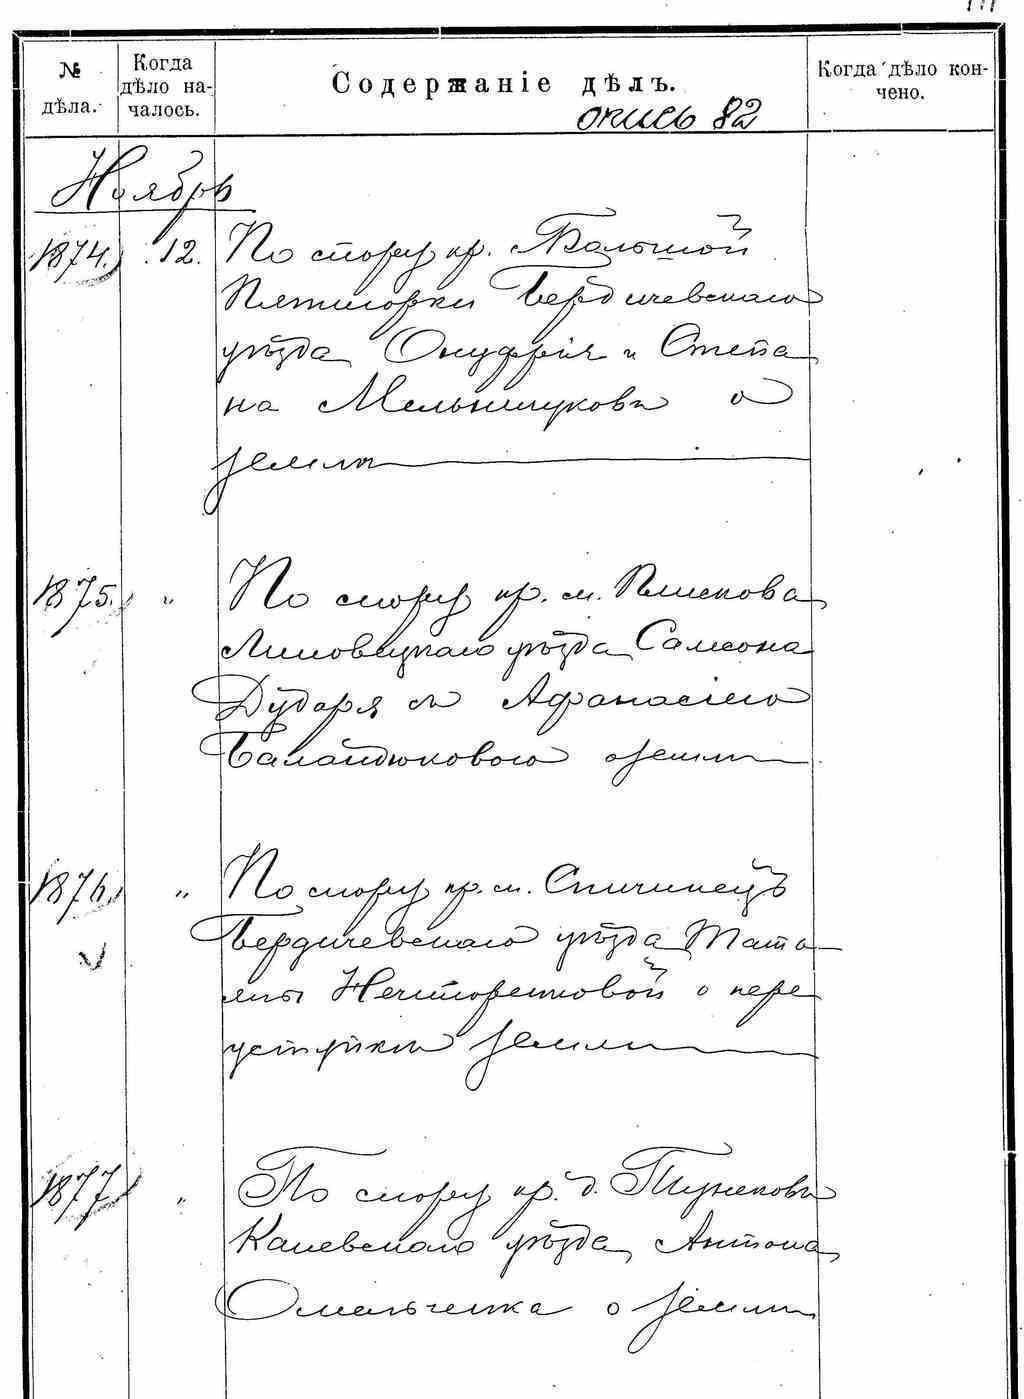 № дѣла.
Когда дѣло на-
чалось.
Содержаніе дѣлъ.
Когда дѣло кон-
чено.
опись 82
Ноябрь
1874. 12. По спору кр. Большой
Пятигорки Бердичевскаго
уѣзда Онуфрія и Степа
на Мельничуковъ о
землѣ
1875. " По спору кр. м. Плискова
Липовецкаго уѣзда Самсона
Дударя съ Афанасіемъ
Баландюковою о землѣ
1876. " По спору кр. м. Спичинецъ
Бердичевскаго уѣзда Тать
яны Нечипоренковой о пере
уступкѣ земли
1877. " По спору кр. д.
Каневскаго уѣзда Антона
Омельченка о землѣ